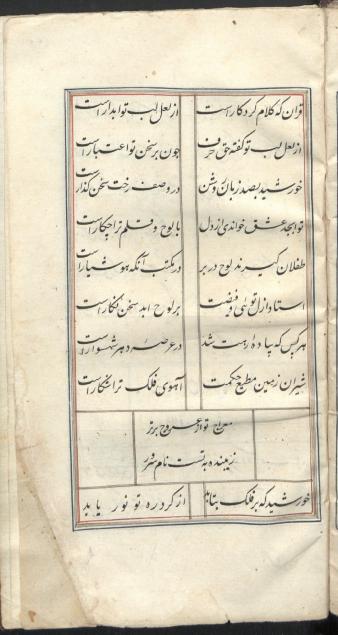 قران که کلام کردکار است از لعل لب تو ابدار است
از لعل لب تو گفته حق حرف چون بر سخن تو اعتبار است
خورشید بصد زبان روشن در وصف رخت سخن گذار است
تو ابجد عشق خواندی از دل با لوح و قلم ترا چکار است
طفلان گیرند لوح در بر در مکتب آنکه هوشیار است
استاد ازل تویی و فیضت بر لوح ابد سخن نگار است
هر کس که پیاده رهت شد در عرصه دهر شهسوار است
شیران زمین مطیع حکمت آهوی فلک ترا شکار است
معراج تو از عروج برتر
زیبنده به تست نام سرور
خورشید که بر فلک بتابد از گرد ره تو نور یابد